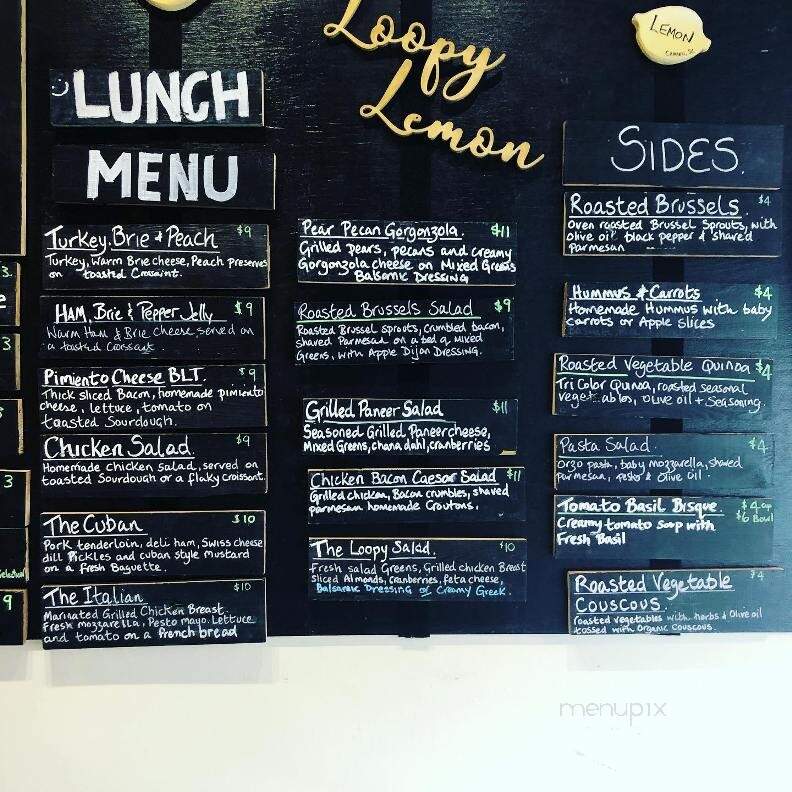 Loopy
Lemon
LEMON
LUNCH
MENU
Turkey, Brie & Peach $9
Turkey, Warm Brie cheese, Peach preserves
on toasted Crossaint.
HAM, Brie & Pepper Jelly $9
Warm Ham & Brie cheese served on
a toasted Crossant.
Pimiento Cheese BLT. $9
Thick sliced Bacon, homemade pimiento
cheese, lettuce, tomato on
toasted Sourdough.
Chicken Salad $9
Homemade chicken salad, served on
toasted Sourdough or a flaky Croissant.
The Cuban $10
Pork tenderloin, deli ham, Swiss cheese
dill Pickles and cuban style mustard
on a fresh Baguette.
The Italian $10
Marinated Grilled Chicken Breast.
Fresh mozzarella, Pesto mayo, Lettuce
and tomato on a french bread
Pear Pecan Gorgonzola. $11
Grilled pears, pecans and creamy
Gorgonzola cheese on Mixed Greens
Balsamic DRESSING
Roasted Brussels Salad $9
Roasted Brussel sprouts, crumbled bacon,
shared Parmesan on a bed of Mixed
Greens, with Apple Dijan Dressing.
Grilled Paneer Salad $11
Seasoned Grilled Paneer cheese,
Mixed Greens, chana dahl, cranberries
Chicken Bacon Caesar Salad $11
Grilled chicken, Bacon crumbles, shaved
parmesan homemade Croutons.
The Loopy Salad. $10
Fresh salad Greens, Grilled chicken Breast
sliced Almonds, cranberries, feta cheese,
Balsamic Dressing or Creamy Greek.
SIDES.
Roasted Brussels $4
oven roasted Brussel Sprouts, with
olive oil black pepper & shared
Parmesan
Hummus & Carrots $4
Homemade Hummus with baby
carrots or Apple slices
Roasted Vegetable Quinoa $4
Tri Color Quinoa, roasted seasonal
vegetables, olive oil + Seasoning.
Pasta Salad. $4
Orzo pasta, baby mozzarella, shaved
parmesan, pesto & Olive oil.
Tomato Basil Bisque. $4 cup
$6 Bowl
Creamy tomato soup with
Fresh Basil
Roasted Vegetable $4
Couscous.
roasted vegetables with herbs & Olive oil
tossed with Organic Couscous.
3.
3
3
9
menupix